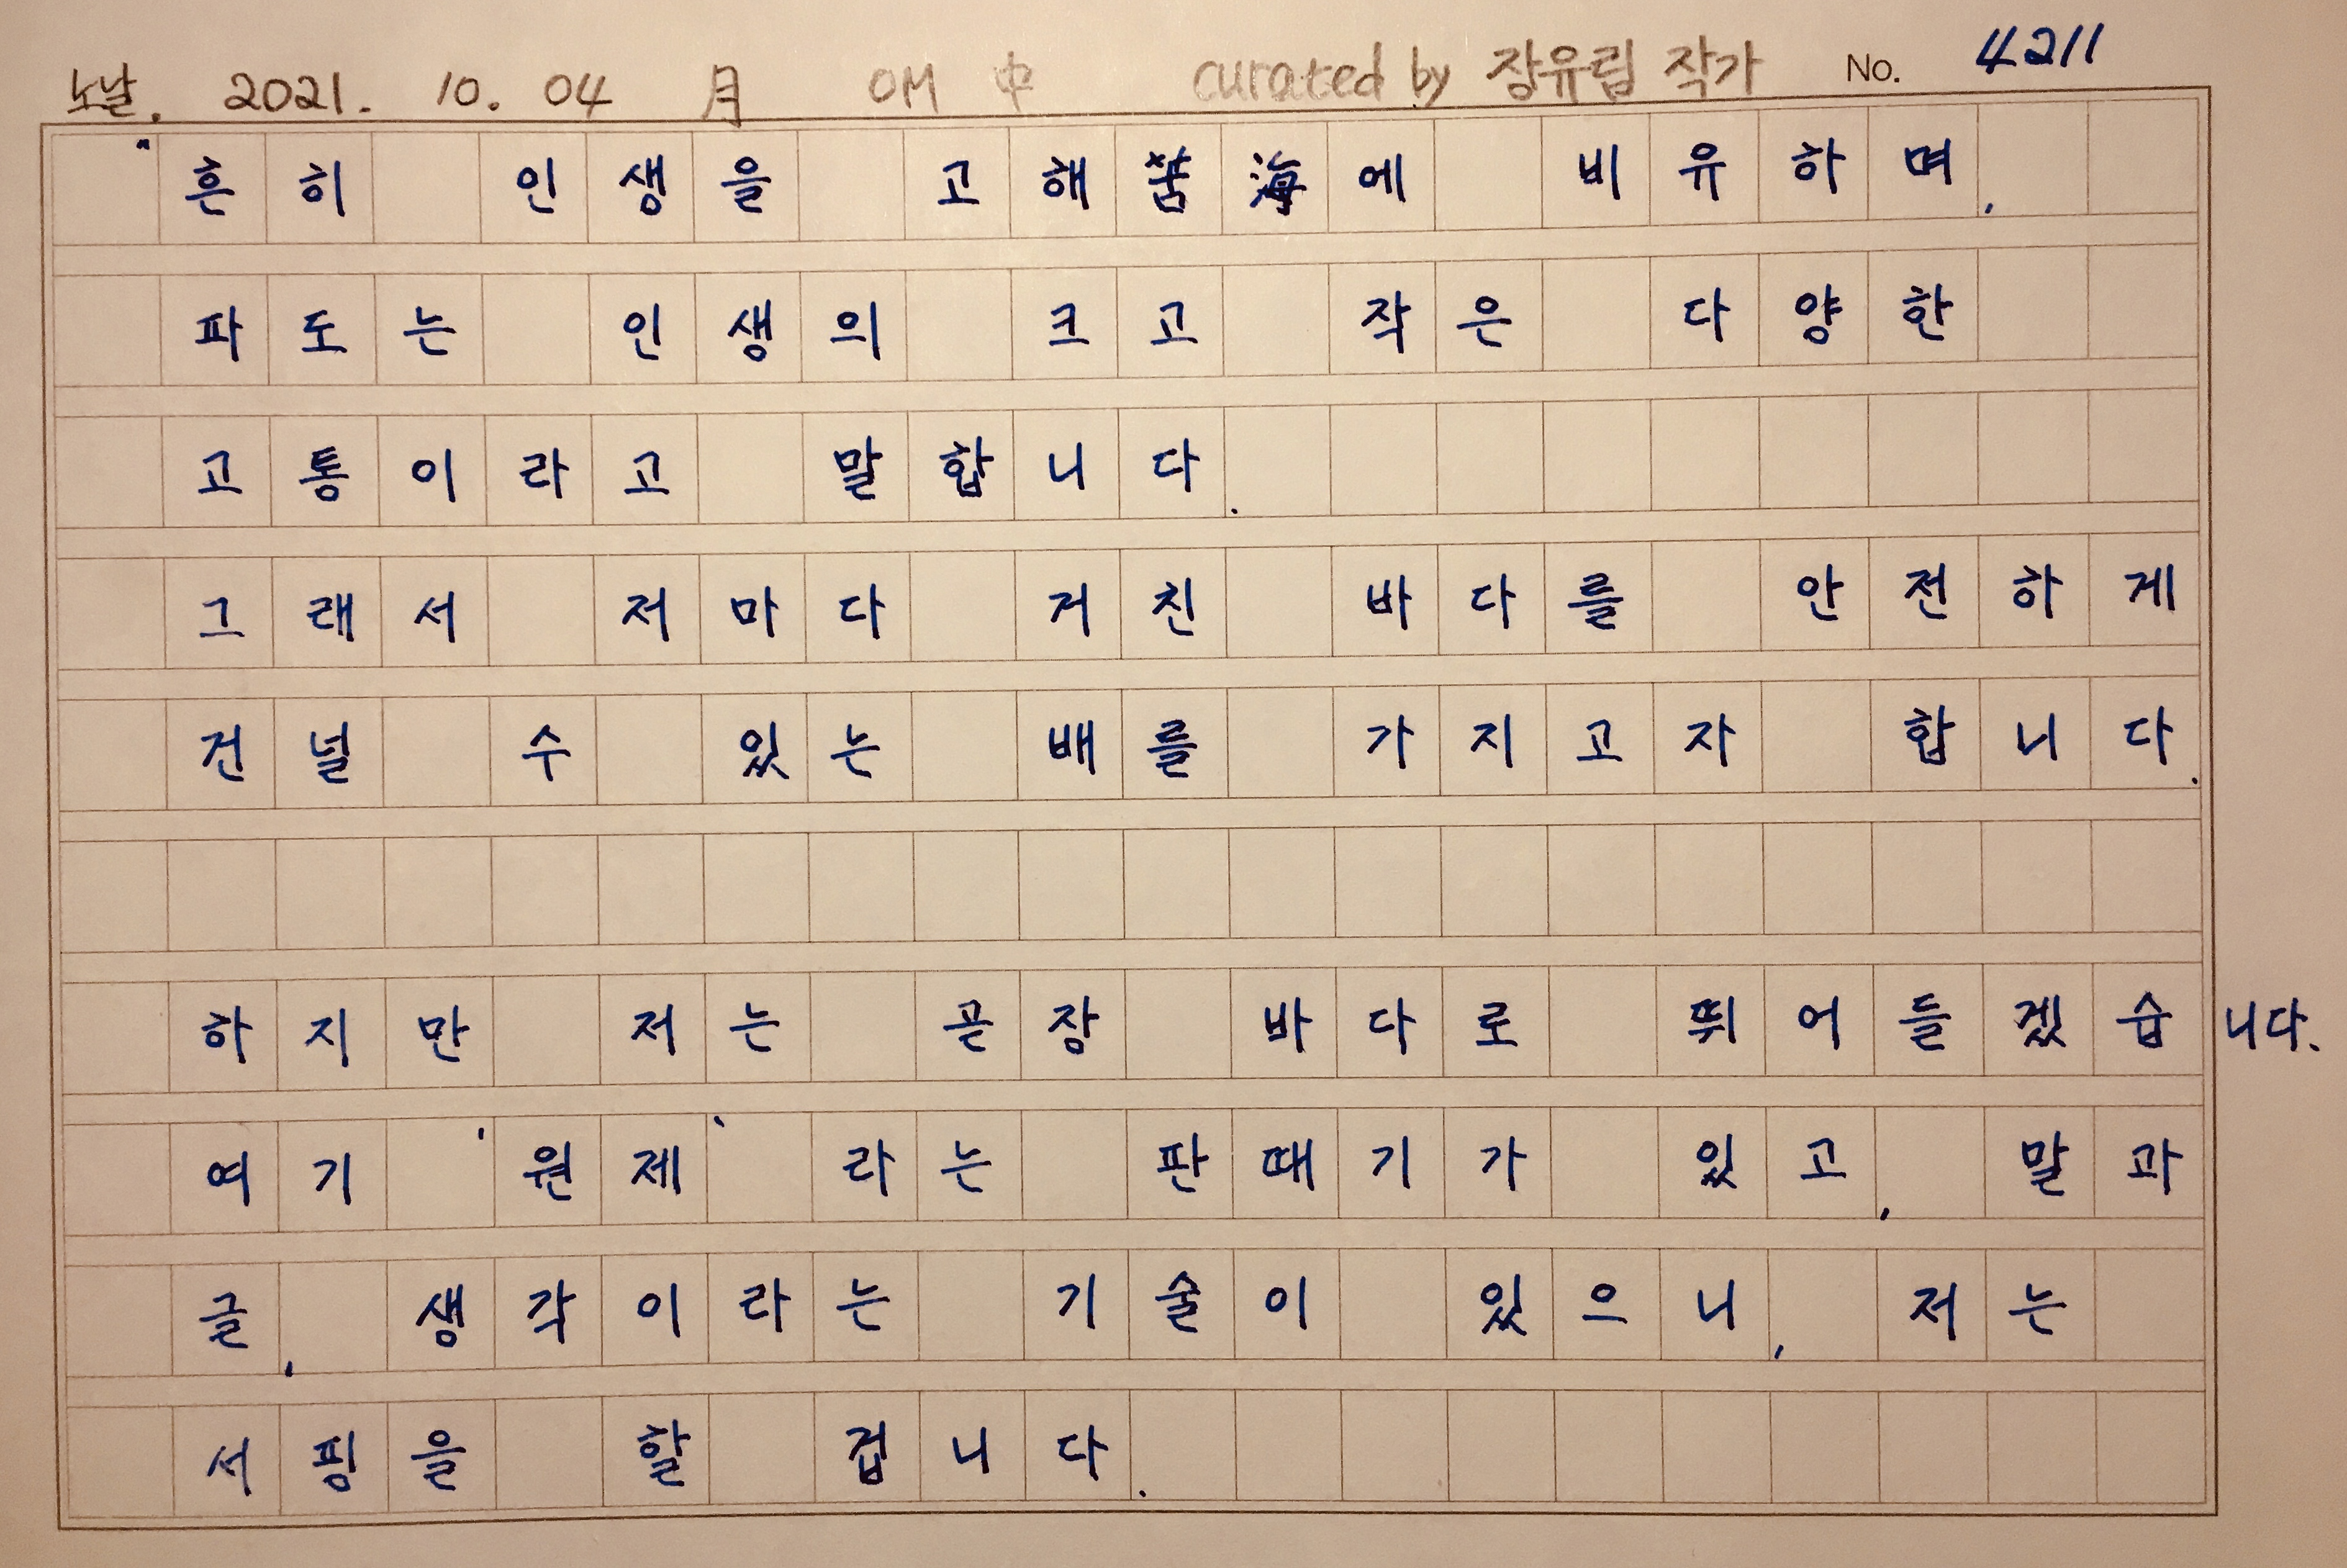 노날. 2021. 10. 04 月 OM 中 curated by 장유림 작가 No. 4211
"흔히 인생을 고해苦海에 비유하며,
파도는 인생의 크고 작은 다양한
고통이라고 말합니다.
그래서 저마다 거친 바다를 안전하게
건널 수 있는 배를 가지고자 합니다.
하지만 저는 곧장 바다로 뛰어들겠습니다.
여기 '원제'라는 판때기가 있고, 말과
글, 생각이라는 기술이 있으니, 저는
서핑을 할 겁니다.